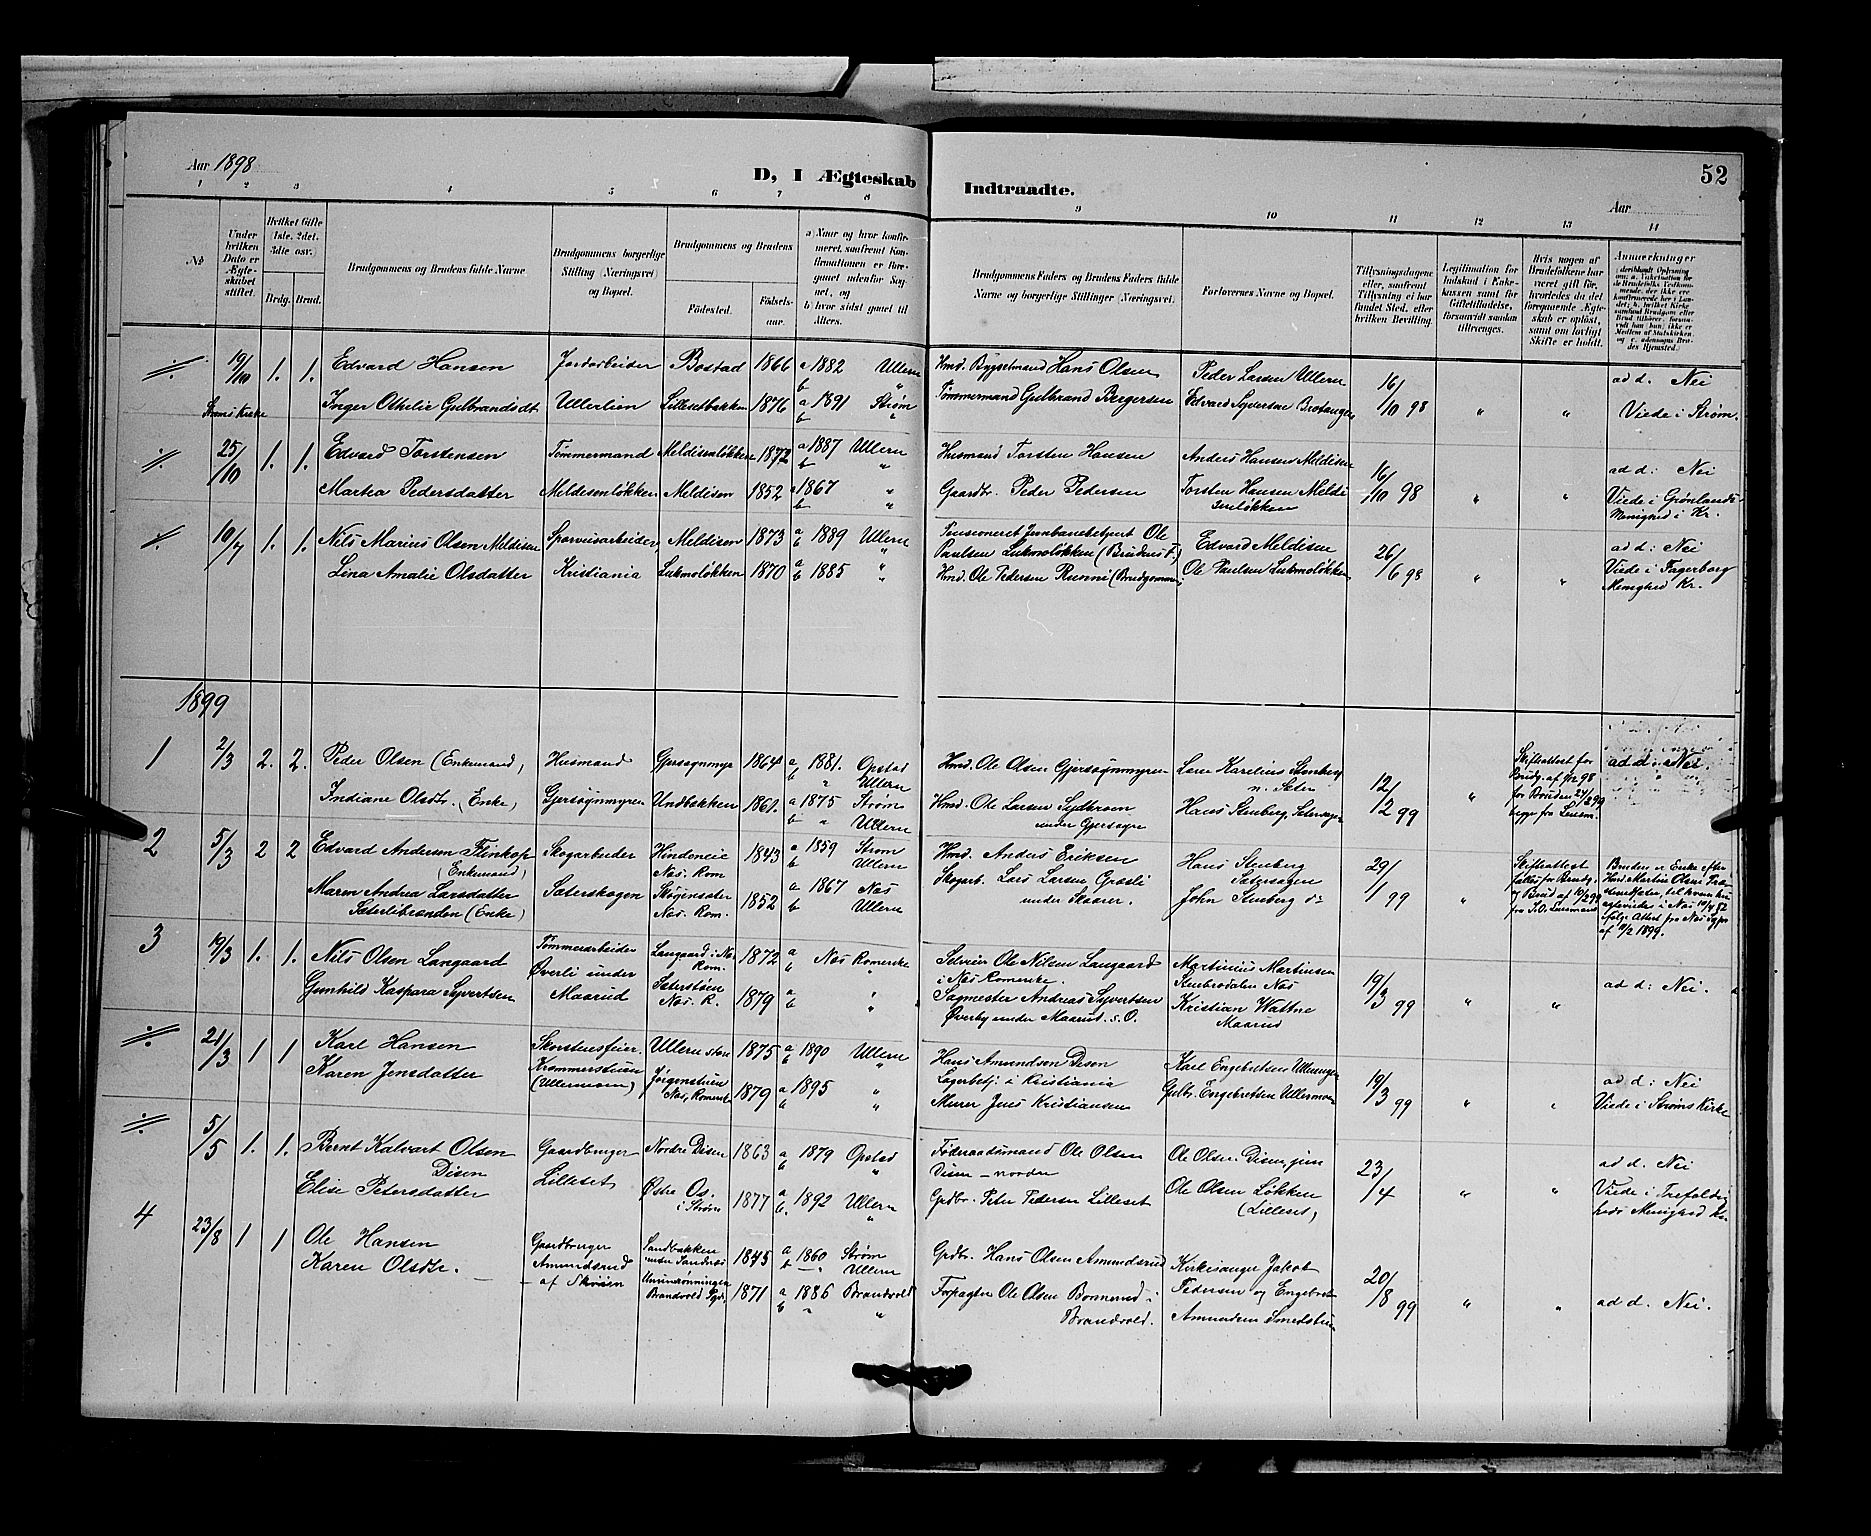 Aar 1898
D, I Ægteskab Indtraadte.
52
Aar
1 2 3 4 5 6 7 8 9 10 11 12 13 14
No
Under hvilken Dato er Ægteskabet stiftet.
Hvilket Gifte 1ste, 2det, 3die osv.
Brdg. Brud.
Brudgommens og Brudens fulde Navne
Brudgommens borgerlige Stilling (Næringsvei) og Bopæl.
Brudgommens og Brudens
Fødested. Fødselsaar.
a) Naar og hvor konfirmeret, saafremt Konfirmationen er foregaaet udenfor Sognet, og
b) hvor sidst gaaet til Alters.
Brudgommens Faders og Brudens Faders fulde Navne og borgerlige Stillinger (Næringsvei).
Forlovernes Navne og Bopæl.
Tillysningsdagene eller, saafremt Tillysning ei har fundet Sted, efter hvilken Bevilling.
Legitimation for Indskud i Enkekassen samt for Giftetilladelse, forsaavidt saadan tiltrænges.
Hvis nogen af Brudefolkene har været gift før, hvorledes da det foregaaende Ægteskab er opløst, samt om lovligt Skifte er holdt.
Anmærkninger
÷ 19/10 1. 1. Edvard Hansen Jordarbeider Bostad 1866 a 1882 Ullern Hmd. Bygselmand Hans Olsen Peder Larsen Ullern 16/10 98 " " ad d. Nei
Strøms Kirke Inger Othelie Gulbrandsdt Ullerlien Lillesetbakken 1876 a 1891 Strøm Tømmermand Gulbrand Bergersen Edvard Syversen Viede i Strøm.
÷ 25/10 1. 1. Edvard Torstensen Tømmermand Meldisenløkken 1872 a 1887 Ullern Husmand Torsten Hansen Anders Hansen Meldisen 16/10 98 " " ad d: Nei
Martea Pedersdatter Meldisenløkken Meldisen 1852 a 1867 " Gaardbr. Peder Pedersen Torsten Hansen Meldisenløkken Viede i Grønlands Menighed i Kr.
÷ 10/7 1. 1. Nils Marius Olsen Meldisen Sporveisarbeider, Meldisen 1873 a 1889 Ullern Pensioneret Jernbanebetjent Ole Paulsen Lukmoløkken (Brudens F.) Edvard Meldisen 26/6 98 " " ad d: Nei
Lina Amalie Olsdatter Kristiania Lukmoløkken 1870 a 1885 " Hmd. Ole Pedersen (Brudgommens Ole Paulsen Lukmoløkken Viede i Fagerborg Menighed Kr.
1899
1 2/3 2. 2. Peder Olsen (Enkemand) Husmand Gjersøgnmyr 1864 a 1881. Opstad b " Ullern Hmd. Ole Olsen Gjersøgnmyren Lars Karelius Stenberg n. Seter 12/2 99 " Skifteattest for Brudg. af 98 for Bruden 27/2 99 begge fra Lensm. ad d: Nei
Indiane Olsdtr. (Enke) Gjersøgnmyren Undbakken 1861. a 1875 Strøm b " Ullern Hmd. Ole Larsen under Gjersøgn Hans Stenberg,
2 5/3 2 2 Edvard Andersen (Enkemand) Skogarbeider Hindeneie Næs. Rom 1843 a 1859 Strøm b Ullern Hmd. Anders Eriksen Hans Stenberg 29/1 99 " Skifteattest
Maren Andrea Larsdatter Sæterlibranden (Enke) Sæterskogen Skøgensæter Næs. Rom. 1852 a 1867 Næs b Ullern Skogarb. Lars Larsen Græsli under Skaarer. John Stenberg Bruden er Enke efter Hmd. Martin Olsen af 11/2 1899.
3 19/3 1. 1. Nils Olsen Langaard Tømmerarbeider Langaard i Næs Rom. 1872 a Næs Romerike Selveier Ole Nilsen Langaard i Næs Romerike. Martinius Martinsen Næs 19/3 99 " " ad d: Nei.
Gunhild Kaspara Syvertsen Øverli under Maarud Sæterstøen Næs. R. 1879 a " b " Sagmester Andreas Syvertsen Øverby under Maarud. s. O. Kristian Wattne Maarud
÷ 21/3 1 1 Karl Hansen Skorstensfeier. Ullern 1875 a 1890 Ullern Hans Amundsen Disen Lagerbetj. i Kristiania Karl Engebretsen 19/3 99 " " ad d: Nei
Karen Jensdatter (Ullermoen) Jørgenstuen Næs, Romerike 1879 a 1895 " Murer Jens Kristiansen Gulbr. Engebretsen Ullermoen Viede i Strøms Kirke
÷ 5/5 1. 1. Bernt Kalvart Olsen Disen Gaardbruger Nordre Disen 1863 a 1879 Opstad Føderaadsmand Ole Olsen Disen nordre Ole Olsen Disen, jun 23/4 " " ad d. Nei
Elise Petersdatter Lilleset Østre Os. i Strøm 1877 a 1892 Ullern Grdbr. Peter Pedersen Lilleset Ole Olsen Løkken (Lilleset) Viede i Trefoldigheds Menighed Kr.
4 23/8 1 1 Ole Hansen Gaardbruger Sandbakken under Sandnes 1845 a 1860 Strøm b " Ullern Grdbr. Hans Olsen Amundsrud Kirkesanger Jakob 20/8 99 " " ad d. Nei.
Karen Olsdtr. Amundsrud Brandvold 1871 a 1886 Brandvold Forpagter Ole Olsen Brandvold. Pedersen og Engebret Amundsen